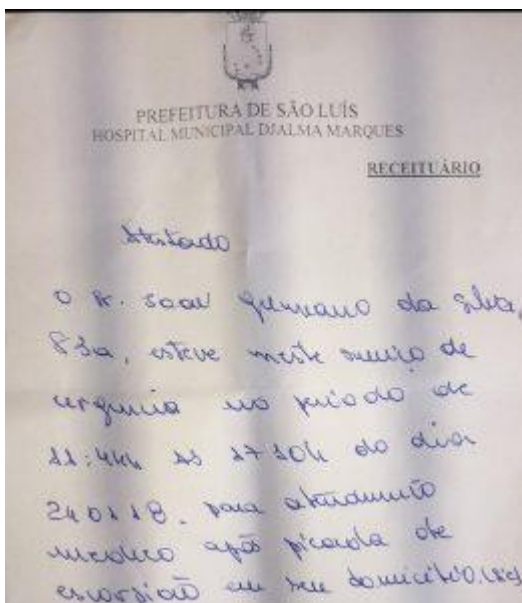 PREFEITURA DE SÃO LUÍS
HOSPITAL MUNICIPAL DJALMA MARQUES
RECEITUÁRIO
Atestado
O Sr. germano da Silva,
esteve neste serviço de
urgência no período de
11:44h às 17:10h do dia
24.01.18. para atendimento
médico após picada de
escorpião em seu domicílio. (sic)